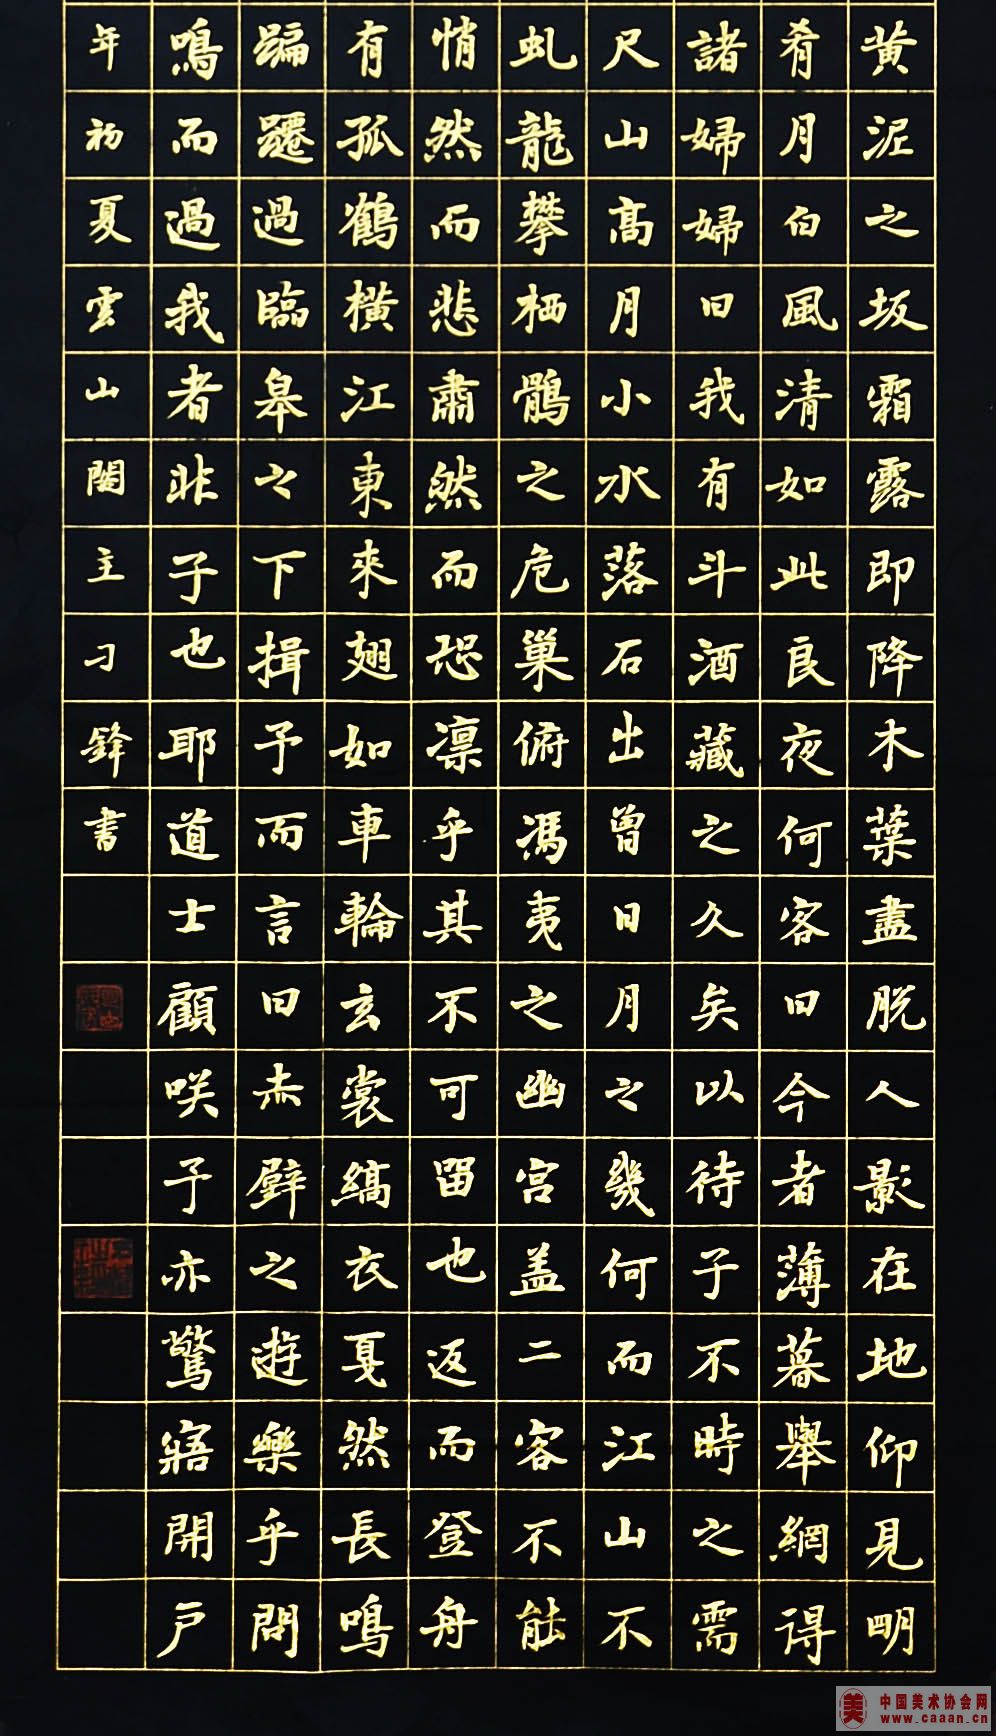 黄泥之坂霜露即降木葉盡脱人影在地仰見明
肴月白風清如此良夜何客曰今者薄暮舉網得
諸婦婦曰我有斗酒藏之久矣以待子不時之需
尺山高月小水落石出曾日月之幾何而江山不
虬龍攀栖鶻之危巢俯馮夷之幽宫盖二客不能
悄然而悲肅然而恐凛乎其不可留也返而登舟
有孤鶴横江東來翅如車輪玄裳縞衣戛然長鳴
蹁躚過臨皋之下揖予而言曰赤壁之遊樂乎問
鳴而過我者非子也耶道士顧咲予亦驚寤開户
年初夏雲山閣主刁鋒書
中国美术协会网
www.caaan.cn